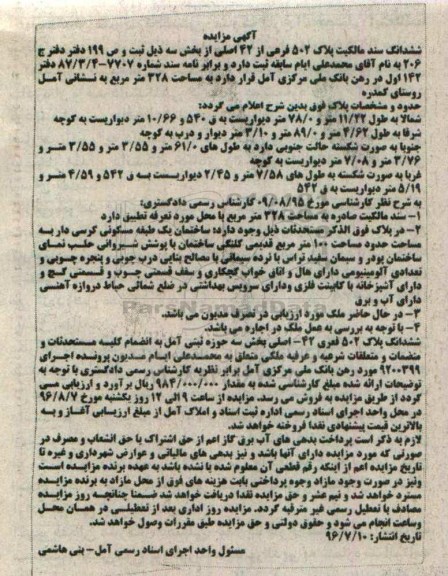 آگهی مزایده
ششدانگ سند مالکیت پلاک ۵۰۲ فرعی از ۴۲ اصلی از بخش سه ذیل ثبت و ص ۱۹۹ دفتر دفتر ج
۲۰۶ به نام آقای محمدعلی ایام سابقه ثبت دارد و برابر نامه سند شماره ۷۷۰۷-۸۷/۳/۴ دفتر
۱۴۲ اول در رهن بانک ملی مرکزی آمل قرار دارد به مساحت ۳۲۸ متر مربع به نشانی آمل
روستای کمدره
حدود و مشخصات پلاک فوق بدین شرح اعلام می گردد:
شمالا به طول ۱۱/۲۲ متر و ۷۸/۰ متر دیواریست به ق ۵۴۰ و ۱۰/۶۶ متر دیواریست به کوچه
شرقا به طول ۴/۶۲ متر و ۸۹/۰ متر و ۳/۱۰ متر دیوار و درب به کوچه
جنوبا به صورت شکسته حالت جنوبی دارد به طول های ۶۱/۰ متر و ۳/۵۵ متر و ۳/۵۵ متر و
۳/۷۶ متر و ۷/۰۸ متر دیواریست به کوچه
غربا به صورت شکسته به طول های ۷/۵۸ متر و ۲/۴۵ دیواریست به ق ۵۴۲ و ۴/۵۹ متر و
۵/۱۹ متر دیواریست به ق ۵۴۲
به شرح نظر کارشناسی مورخ ۰۹/۰۸/۹۵ کارشناس رسمی دادگستری:
۱- سند مالکیت صادره به مساحت ۳۲۸ متر مربع با محل مورد تعرفه تطبیق دارد
۲- در پلاک فوق الذکر مستحدثات ذیل وجود دارد: ساختمان یک طبقه مسکونی کرسی دار به
مساحت حدود مساحت ۱۰۰ متر مربع قدیمی کلنگی ساختمان با پوشش شیروانی حلب نمای
ساختمان پودر و سیمان سفید تراس با نرده سیمانی با مصالح بنایی درب چوبی و پنجره چوبی و
تعدادی آلومینیومی دارای هال و اتاق خواب گچکاری و سقف قسمتی چوب و قسمتی گچ و
دارای آشپزخانه با کابینت فلزی ودارای سرویس بهداشتی در ضلع شمالی حیاط دروازه آهنی
دارای آب و برق
۳- در حال حاضر ملک مورد ارزیابی در تصرف مدیون می باشد.
۴- با توجه به بررسی به عمل ملک در اجاره می باشد.
ششدانگ پلاک ۵۰۲ فعری ۴۲- اصلی بخش سه حوزه ثبتی آمل به انضمام کلیه مستحدثات و
منضمات و متعلقات شرعیه و عرفیه ملکی متعلق به محمدعلی ایام مدیون پرونده اجرای
۹۲۰۰۳۹۹ مورد رهن بانک ملی مرکزی آمل برابر نظریه کارشناس رسمی دادگستری با توجه به
توضیحات ارائه شده مبلغ کارشناسی شده به مقدار ۹۸۴/۰۰۰/۰۰۰ ریال برآورد و ارزیابی می
گردد از طریق مزایده به فروش می رسد. مزایده از ساعت ۹ الی ۱۲ روز یکشنبه مورخ ۹۶/۸/۷
در محل واحد اجرای اسناد رسمی اداره ثبت اسناد و املاک آمل از مبلغ ارزیابی آغاز و به
بالاترین قیمت پیشنهادی نقدا فروخته خواهد شد.
لازم به ذکر است پرداخت بدهی های آب برق گاز اعم از حق اشتراک یا حق انشعاب و مصرف در
صورتی که مورد مزایده دارای آنها باشد و نیز بدهی های مالیاتی و عوارض شهرداری و غیره تا
تاریخ مزایده اعم از اینکه رقم قطعی آن معلوم شده یا نشده باشد به عهده برنده مزایده است
ونیز در صورت وجود مازاد وجوه پرداختی بابت هزینه های فوق از محل مازاد به برنده مزایده
مسترد خواهد شد و نیم عشر و حق مزایده نقدا دریافت خواهد شد ضمنا چنانچه روز مزایده
مصادف با تعطیل رسمی غیر مترقبه گردد، مزایده روز اداری بعد از تعطیلی در همان محل
وساعت انجام می شود و حقوق دولتی و حق مزایده طبق مقررات وصول خواهد شد.
تاریخ انتشار: ۹۶/۷/۱۰
مسئول واحد اجرای اسناد رسمی آمل- بنی هاشمی